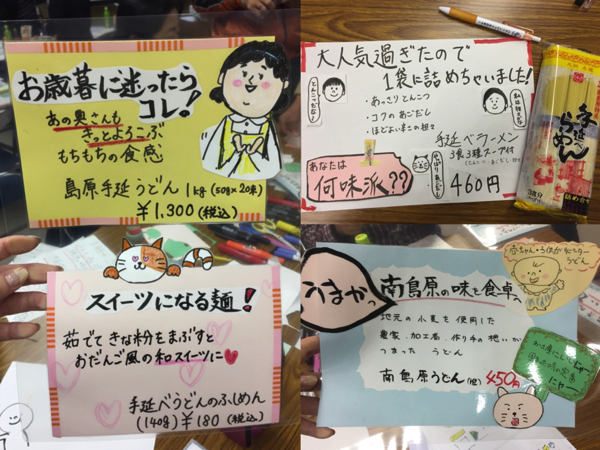 お歳暮に迷ったら
コレ!
あの奥さんも
きっとようこぶ
もちもちの食感
島原手延うどん 1kg (50g×20束)
¥1,300 (税込)
大人気過ぎたので
1袋に詰めちゃいました!
・あっさりとんこつ
・コクのあごだし
手延べラーメン
3食3種スープ付
あなたは
何味派??
460円
手延べ
らーめん
スイーツになる麺!
茹でてきな粉をまぶすと
おだんご風の和スイーツに
手延べうどんのふしめん
(140g) ¥180 (税込)
うまかっ
南島原の味を食卓へ
地元の小麦を使用した
農家、加工者、作り手の想いが
つまった うどん
南島原うどん(他) 450円